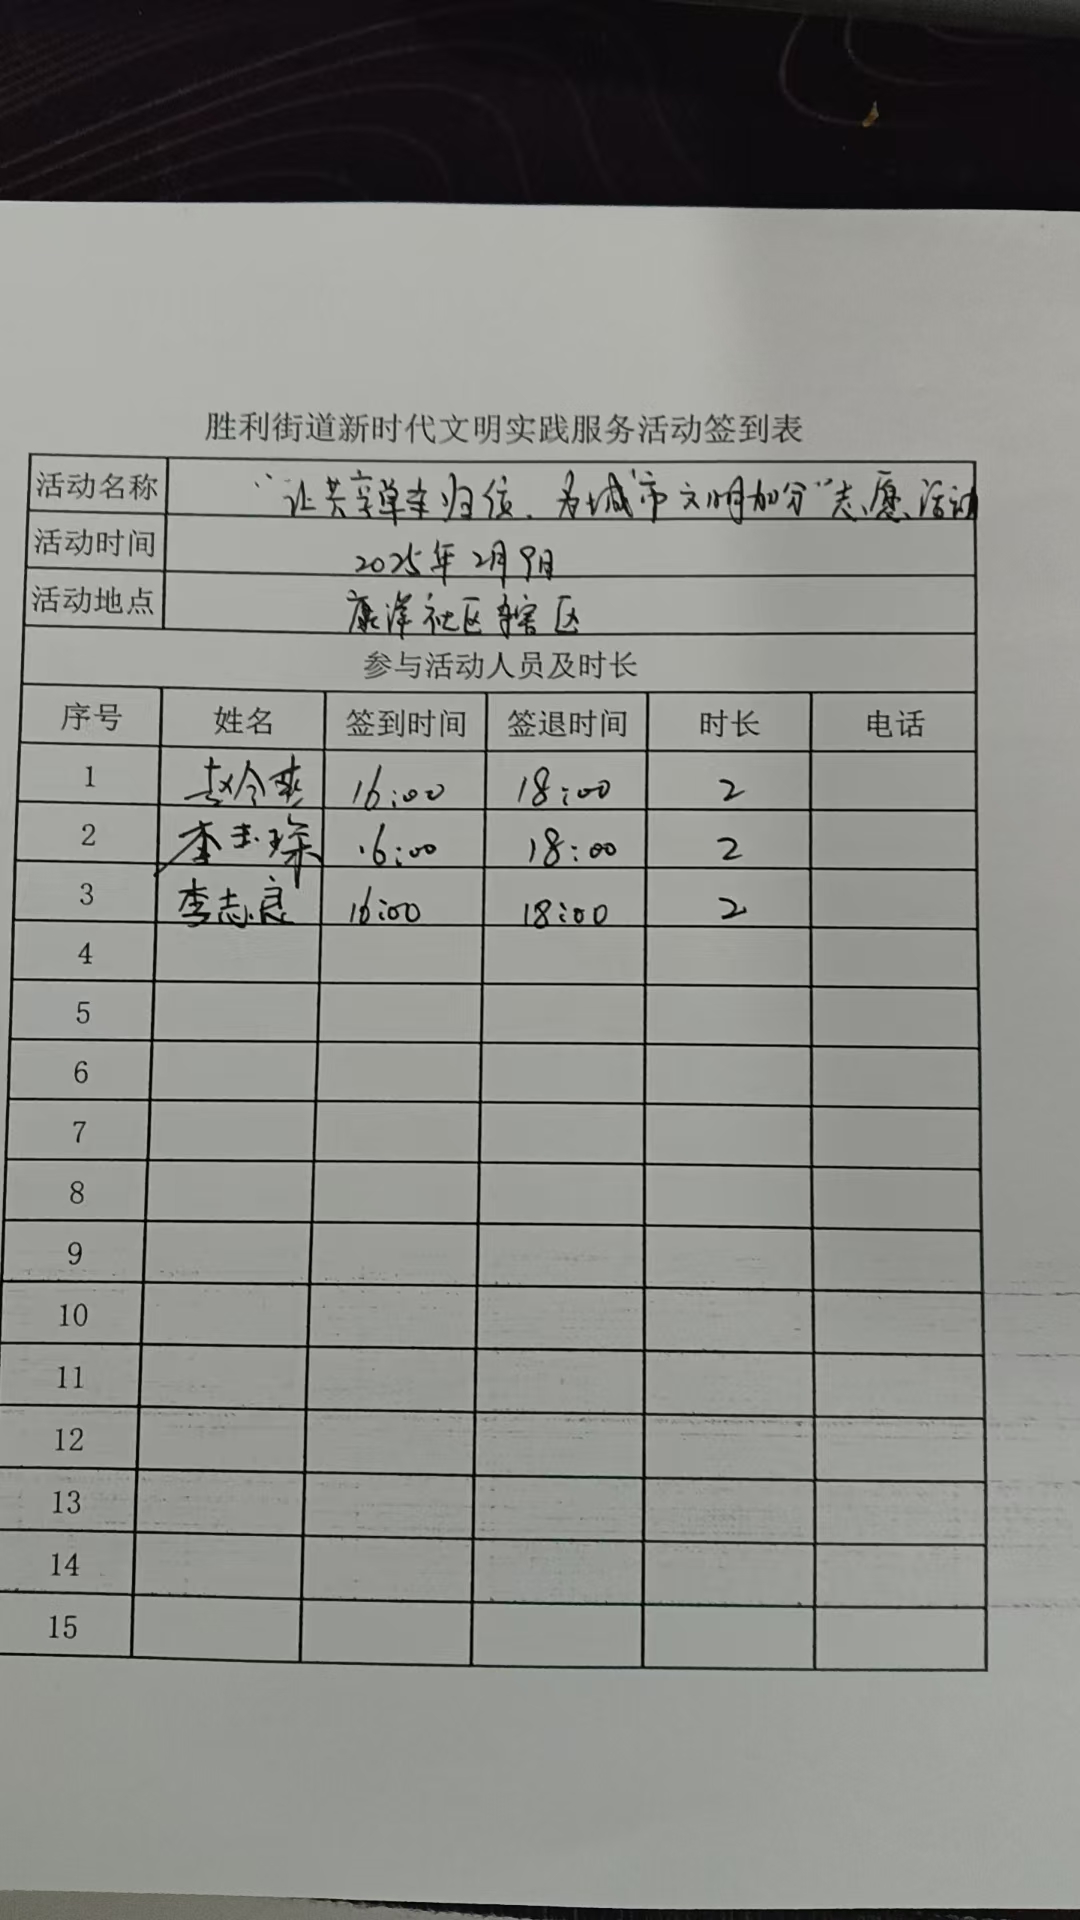 胜利街道新时代文明实践服务活动签到表
活动名称 “让共享单车归位、为城市文明加分”志愿活动
活动时间 2025年2月9日
活动地点 康洋社区辖区
参与活动人员及时长
序号 姓名 签到时间 签退时间 时长 电话
1 赵令爽 16:00 18:00 2
2 李玉琛 16:00 18:00 2
3 李志良 16:00 18:00 2
4
5
6
7
8
9
10
11
12
13
14
15